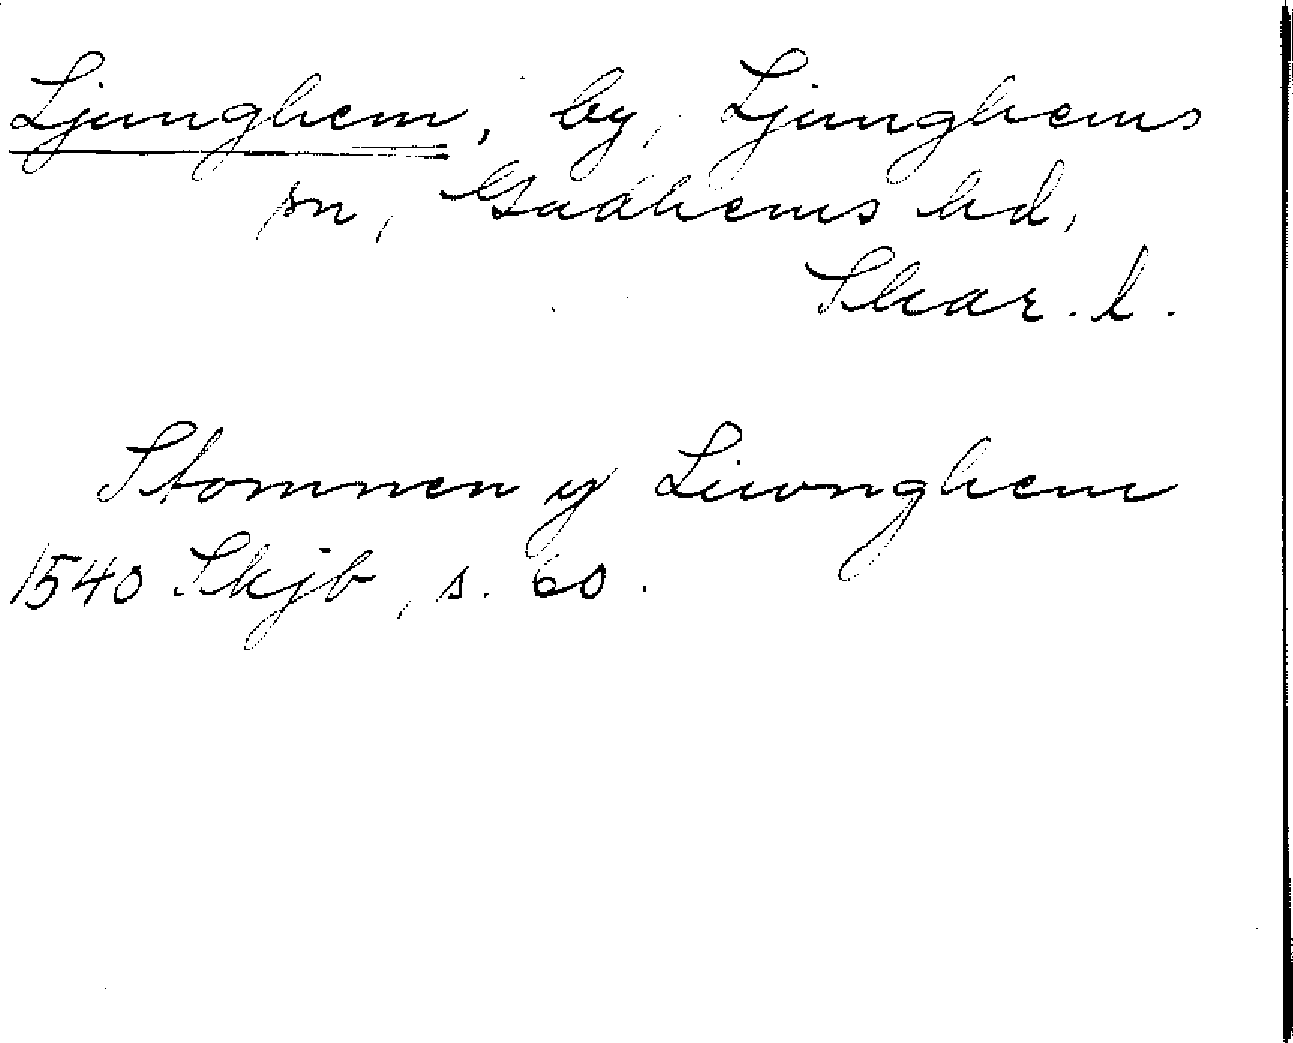 Ljunghem, by, Ljunghems
sn, Gudhems hd,
Skar. l.
Stomnen y Liwnghem
1540 Skjb, s. 60.